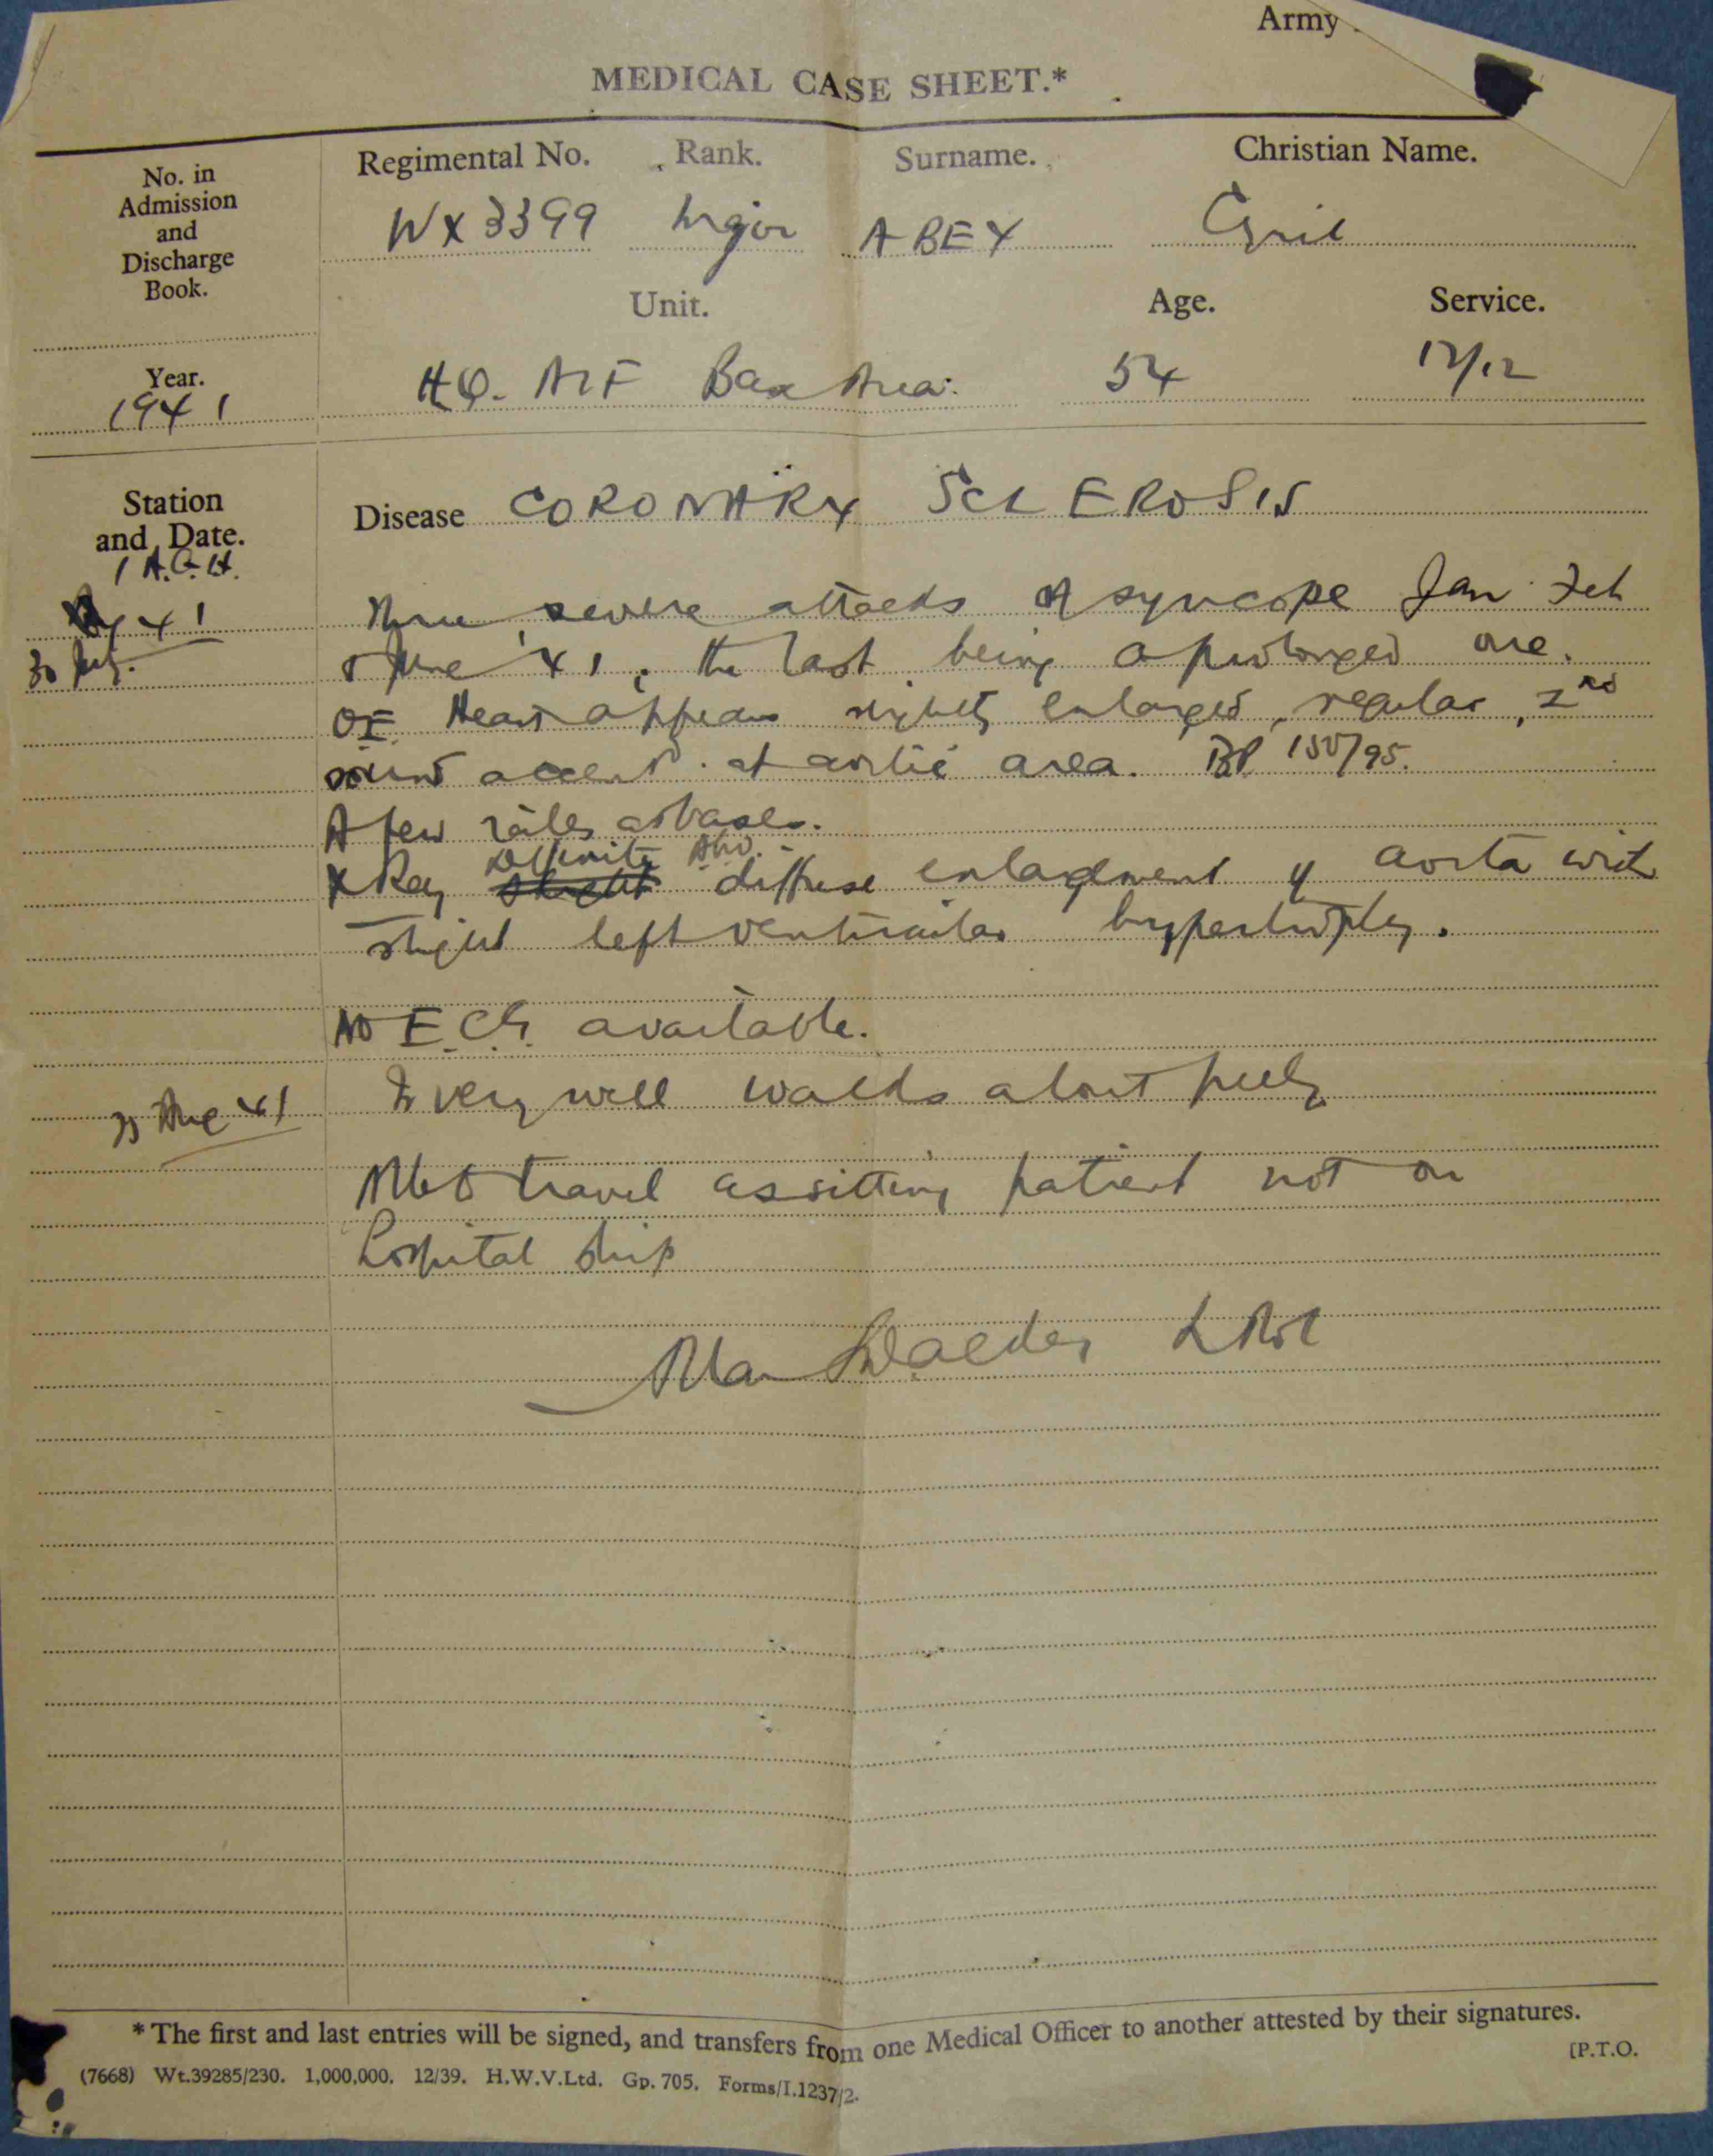 Army
MEDICAL CASE SHEET.*
No. in
Admission
and
Discharge
Book.
Regimental No. Rank. Surname. Christian Name.
WX 3399 Major ABEY Cyril
Unit. Age. Service.
HQ. AIF Base Area. 54 12/12
Year.
1941
Station
and Date.
1 A.G.H.
41
30 July.
Disease CORONARY SCLEROSIS
Three severe attacks of syncope Jan Feb
& June 41, the last being a prolonged one.
OE Heart appears slightly enlarged, regular, 2nd
sound accent. at aortic area. BP 150/95.
A few râles at bases.
Definite
X Ray slight diffuse enlargement of aorta with
slight left ventricular hypertrophy.
No E.C.G. available.
Aug 41
Is very well walks about freely
travel as sitting patient not on
hospital ship
*The first and last entries will be signed, and transfers from one Medical Officer to another attested by their signatures.
[P.T.O.
(7668) Wt.39285/230. 1,000,000. 12/39. H.W.V.Ltd. Gp. 705. Forms/I.1237/2.